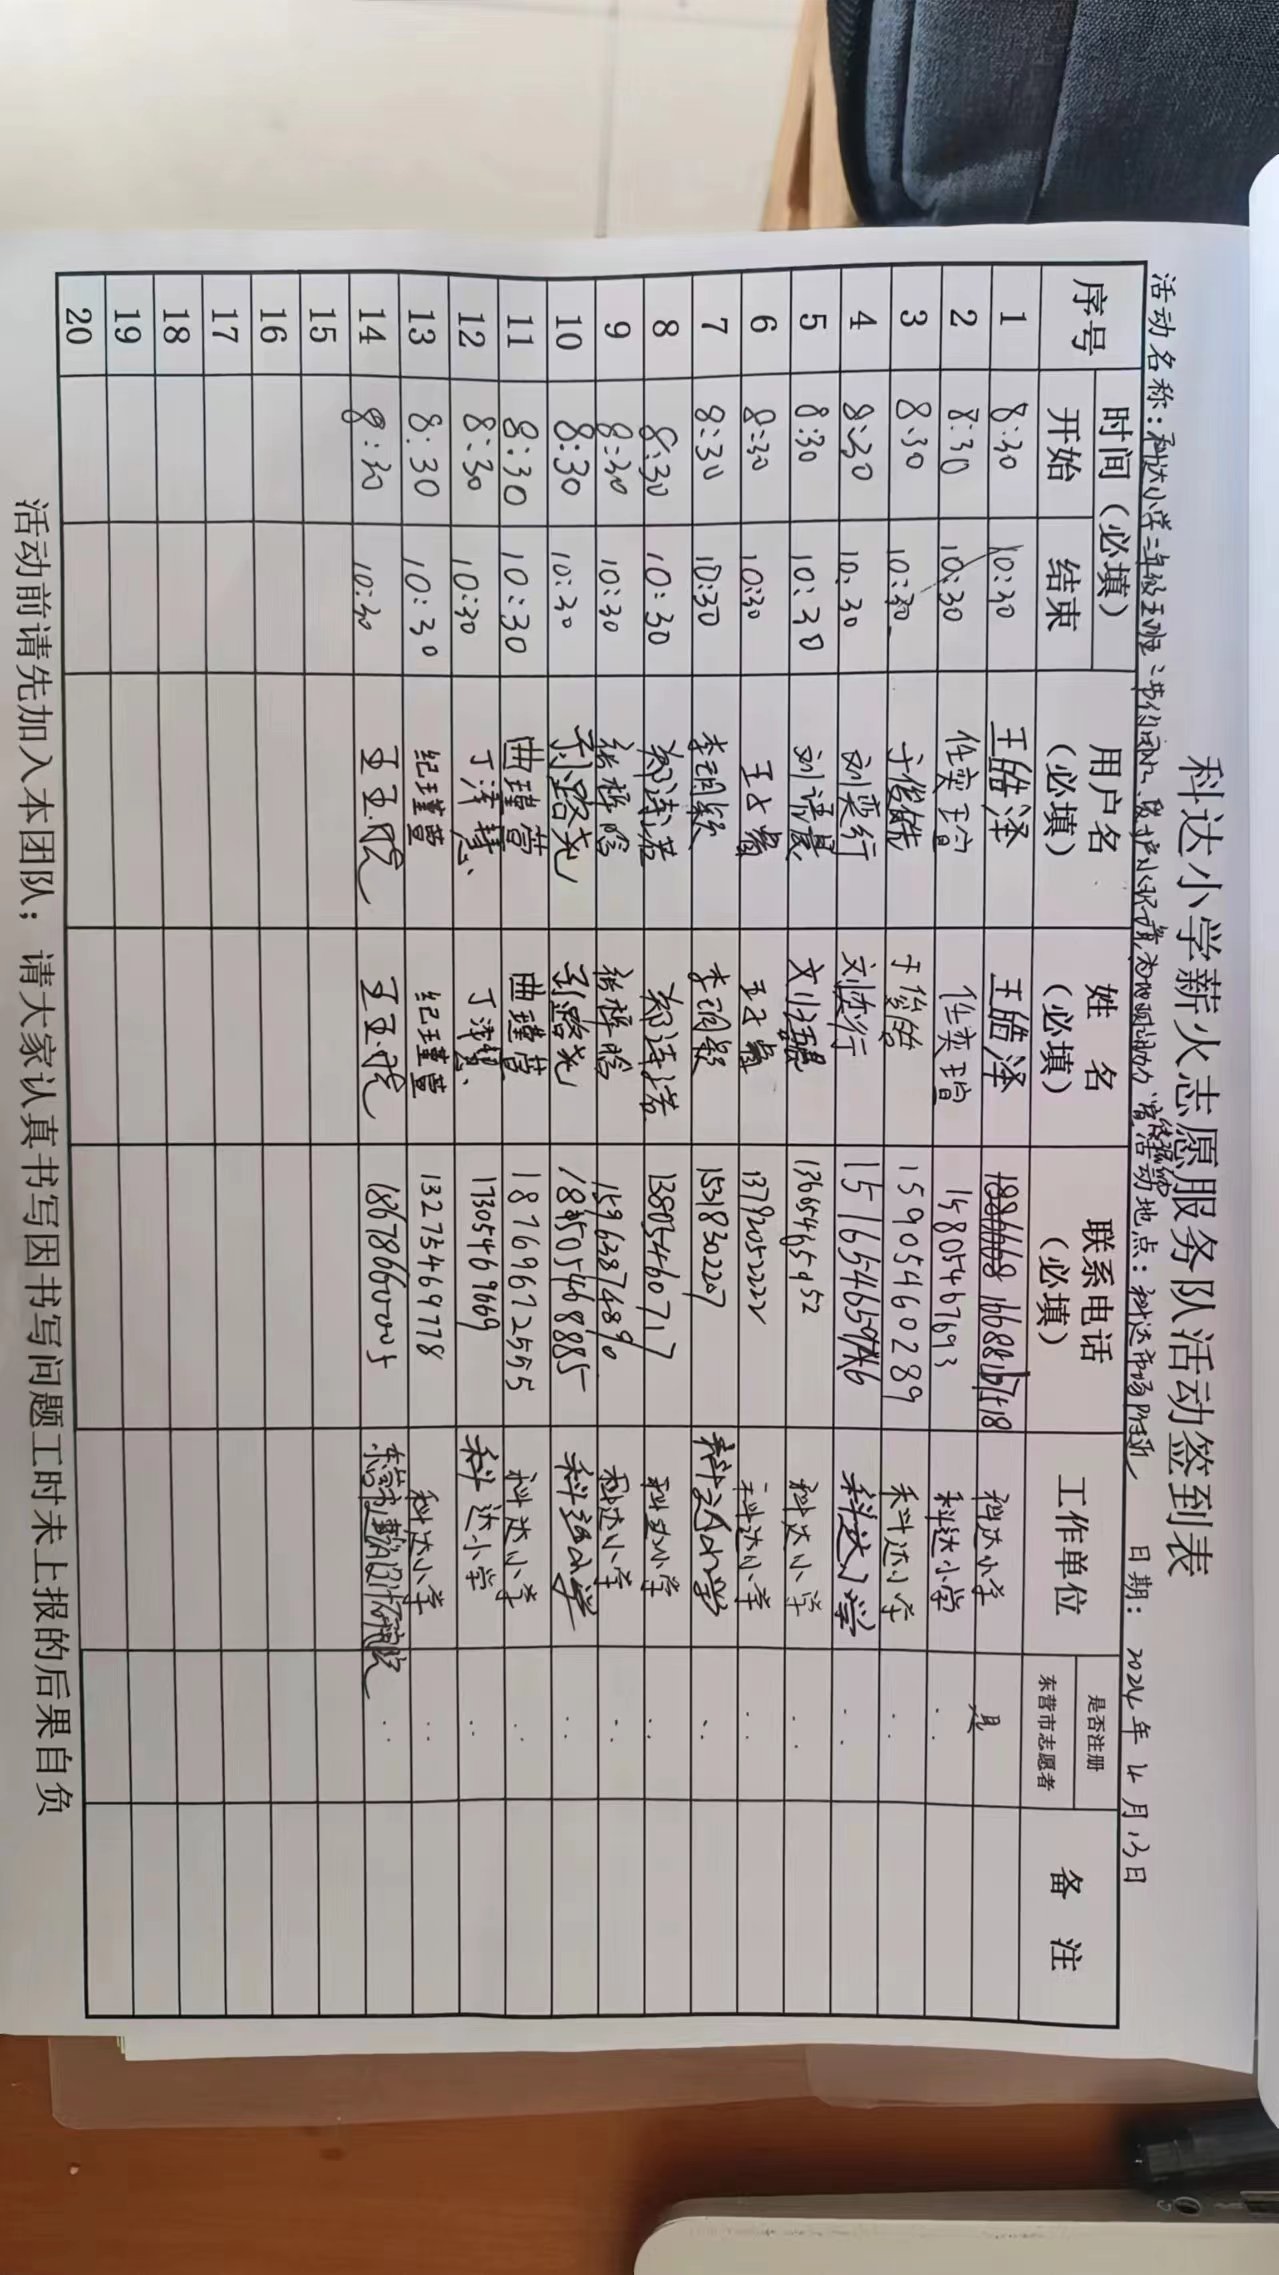 科达小学薪火志愿服务队活动签到表
活动名称：科达小学二年级五班 活动地点：科达市场附近 日期：2024年4月13日
序号 时间（必填） 用户名（必填） 姓名（必填） 联系电话（必填） 工作单位 是否注册东营市志愿者 备注
开始 结束
1 8:30 10:30 王皓泽 王皓泽 科达小学 是
2 8:30 10:30 任奕瑄 任奕瑄 15805467693 科达小学 ..
3 8:30 10:30 于俊皓 于俊皓 15905460289 科达小学 ..
4 8:30 10:30 刘奕行 刘奕行 科达小学 ..
5 8:30 10:30 13665465952 科达小学 ..
6 8:30 10:30 13792052222 科达小学 ..
7 8:30 10:30 李玥颖 李玥颖 15318302207 科达小学 ..
8 8:30 10:30 13805460717 科达小学 ..
9 8:30 10:30 张梓晗 张梓晗 15963874890 科达小学 ..
10 8:30 10:30 科达小学 ..
11 8:30 10:30 曲瑾萱 曲瑾萱 18769672555 科达小学 ..
12 8:30 10:30 丁泽慧 丁泽慧 17305469669 科达小学 ..
13 8:30 10:30 纪瑾萱 纪瑾萱 13275469778 科达小学 ..
14 8:30 10:30 王玉悦 王玉悦 18678660005 ..
15
16
17
18
19
20
活动前请先加入本团队；请大家认真书写因书写问题工时未上报的后果自负